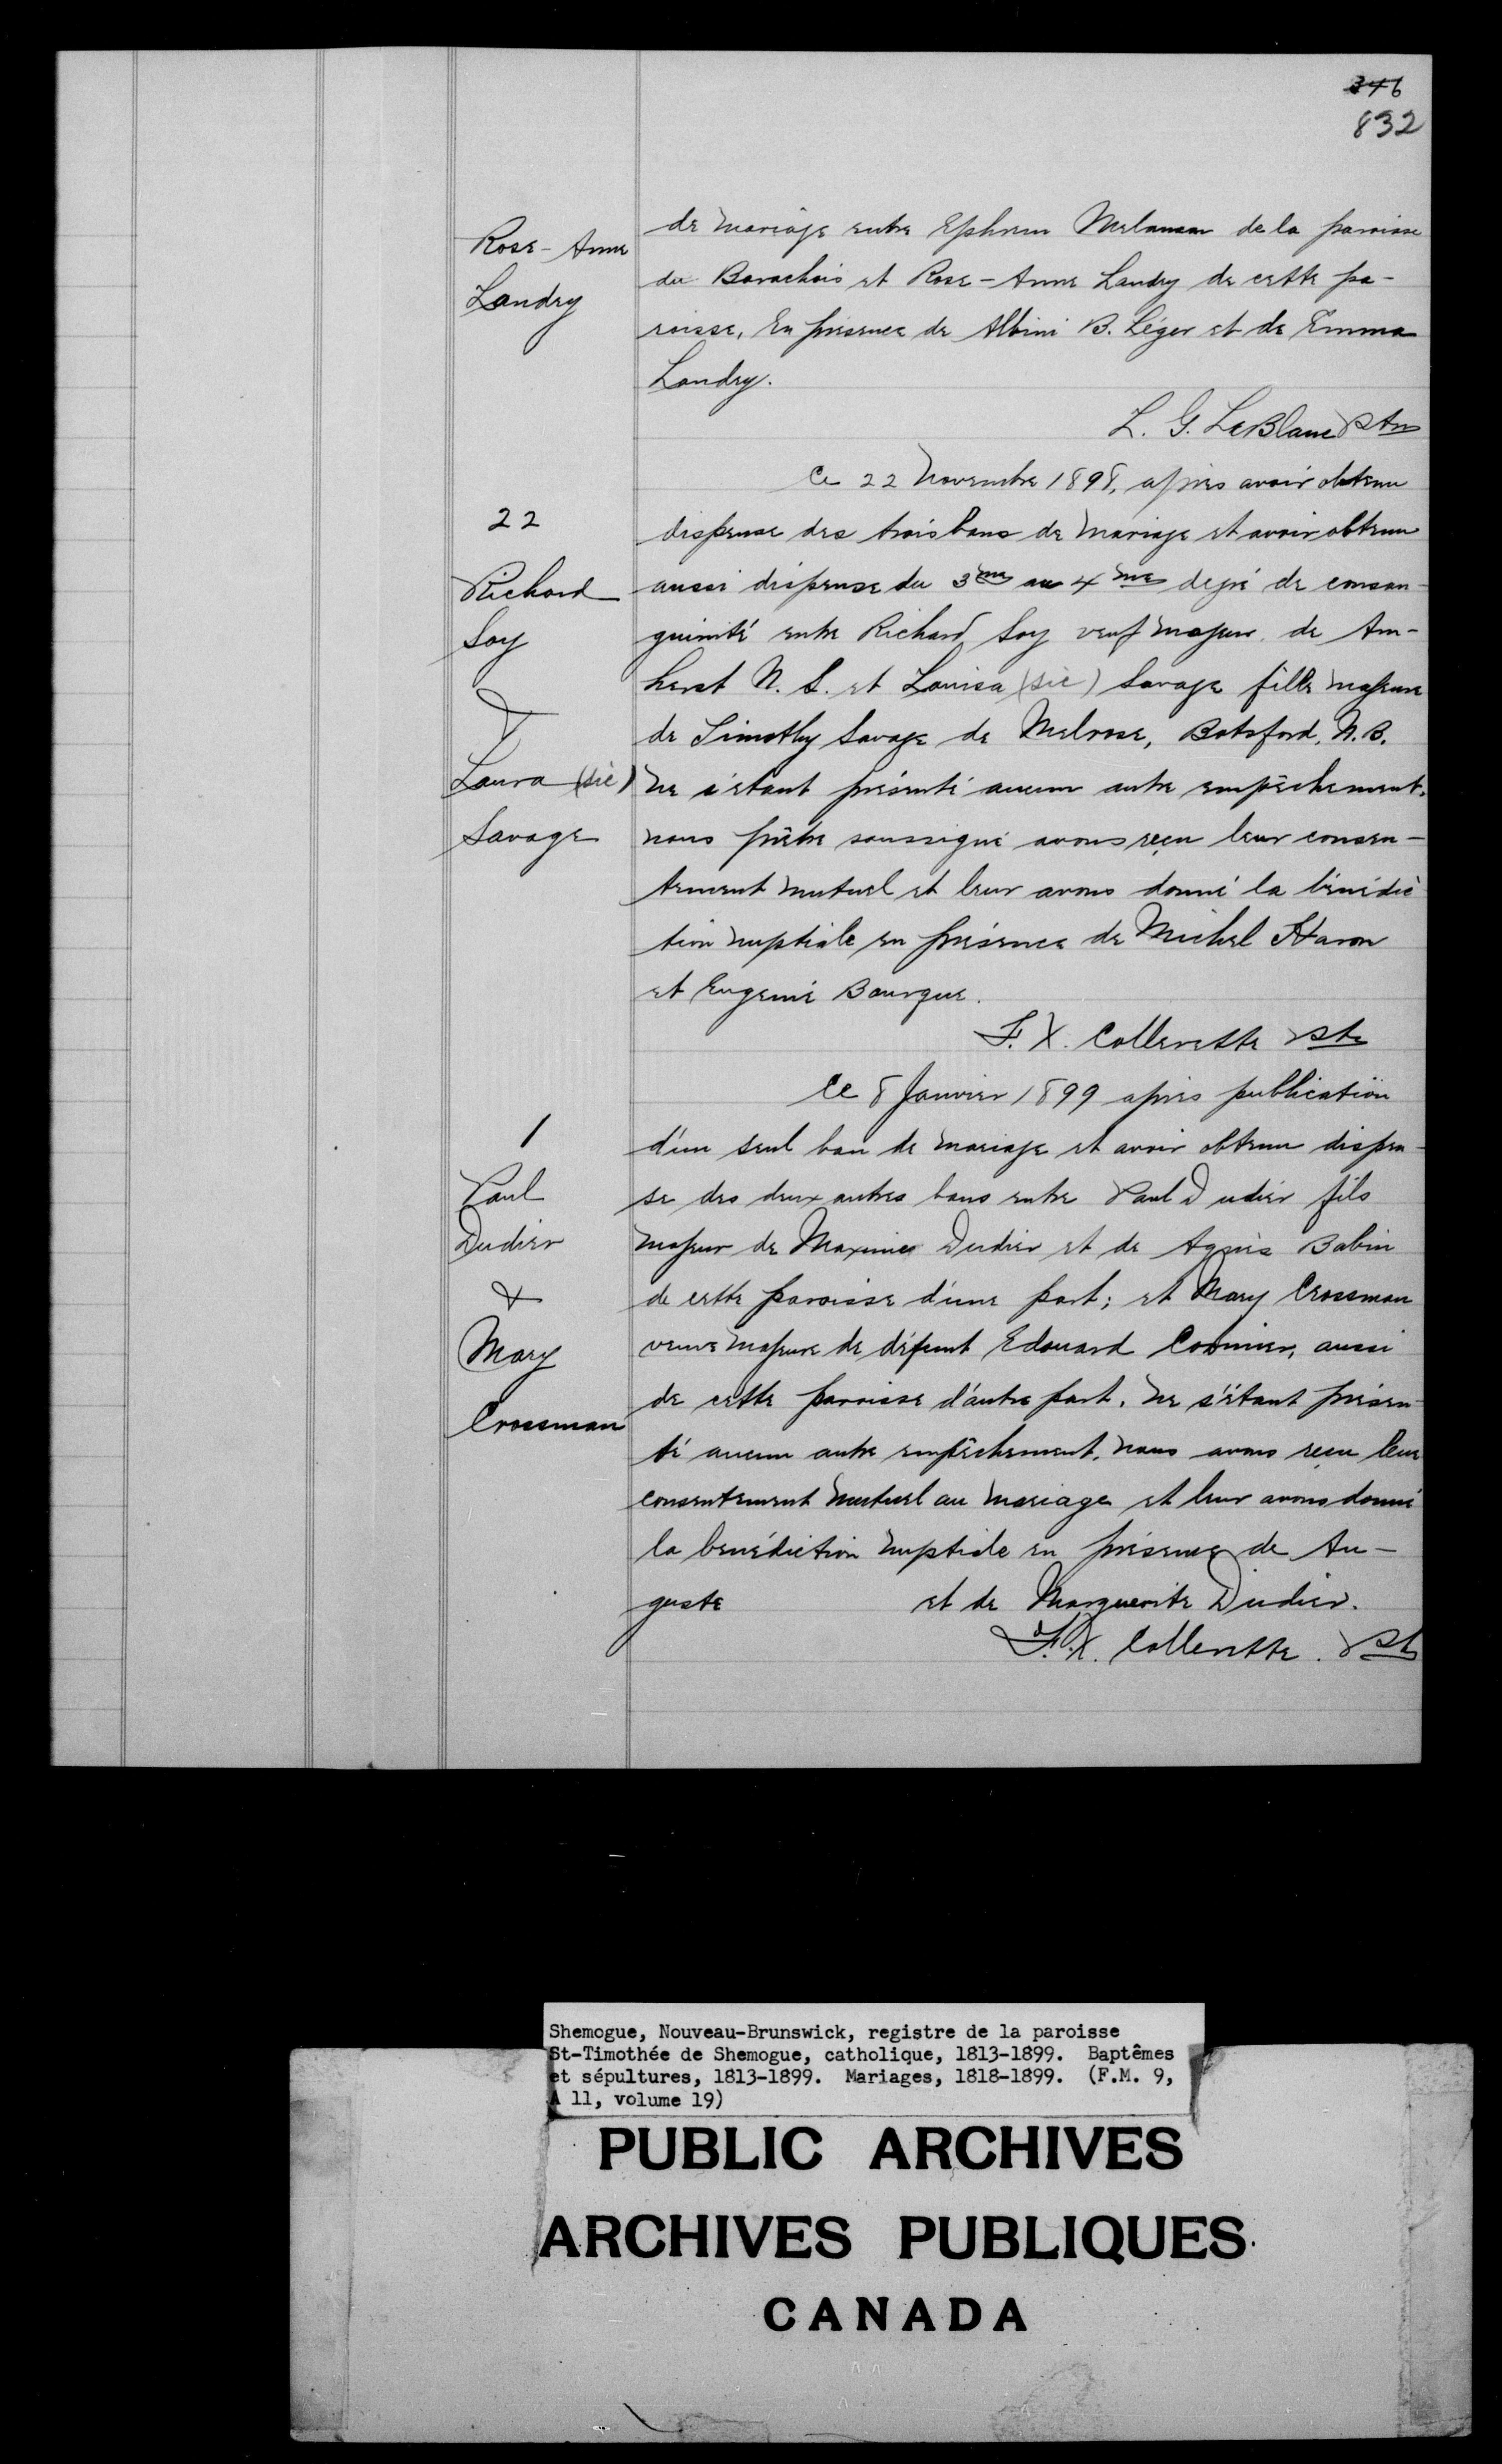 346
832
Rose-Anne
Landry
de mariage entre Ephrem Melanson de la paroisse
du Barachois et Rose-Anne Landry de cette pa-
roisse, En présence de Albini B. Léger et de Emma
Landry.
L. G. LeBlanc Ptre
22
Richard
Soy
&
Laura (sic)
Savage
Ce 22 Novembre 1898, après avoir obtenu
dispense des trois bans de mariage et avoir obtenu
aussi dispense du 3me au 4me degré de consan-
guinité entre Richard Soy veuf majeur de Am-
herst N. S. et Louisa (sic) Savage fille majeure
de Timothy Savage de Melrose, Botsford, N.B.
ne s'étant présenté aucun autre empêchement,
nous prêtre soussigné avons reçu leur consen-
tement mutuel et leur avons donné la bénédic
tion nuptiale en présence de Michel
et Eugenie Bourque.
F. X. Collerette Ptre
1
Paul
Dudier
&
Mary
Crossman
Ce 8 Janvier 1899 après publication
d'un seul ban de mariage et avoir obtenu dispen-
se des deux autres bans entre Paul Dudier fils
majeur de Maxime Dudier et de Agnès Babin
de cette paroisse d'une part; et Mary Crossman
veuve majeure de défunt Edouard Cormier, aussi
de cette paroisse d'autre part. Ne s'étant présen-
té aucun autre empêchement, nous avons reçu leur
consentement mutuel au mariage et leur avons donné
la bénédiction nuptiale en présence de Au-
guste et de Marguerite Dudier.
F. X. Collerette. Pt
Shemogue, Nouveau-Brunswick, registre de la paroisse
St-Timothée de Shemogue, catholique, 1813-1899. Baptêmes
et sépultures, 1813-1899. Mariages, 1818-1899. (F.M. 9,
A 11, volume 19)
PUBLIC ARCHIVES
ARCHIVES PUBLIQUES
CANADA